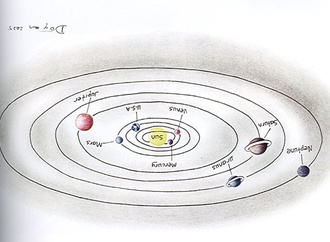 Jupiter
U.S.A
Venus
Mars
Sun
Mercury
Saturn
Uranus
Neptune